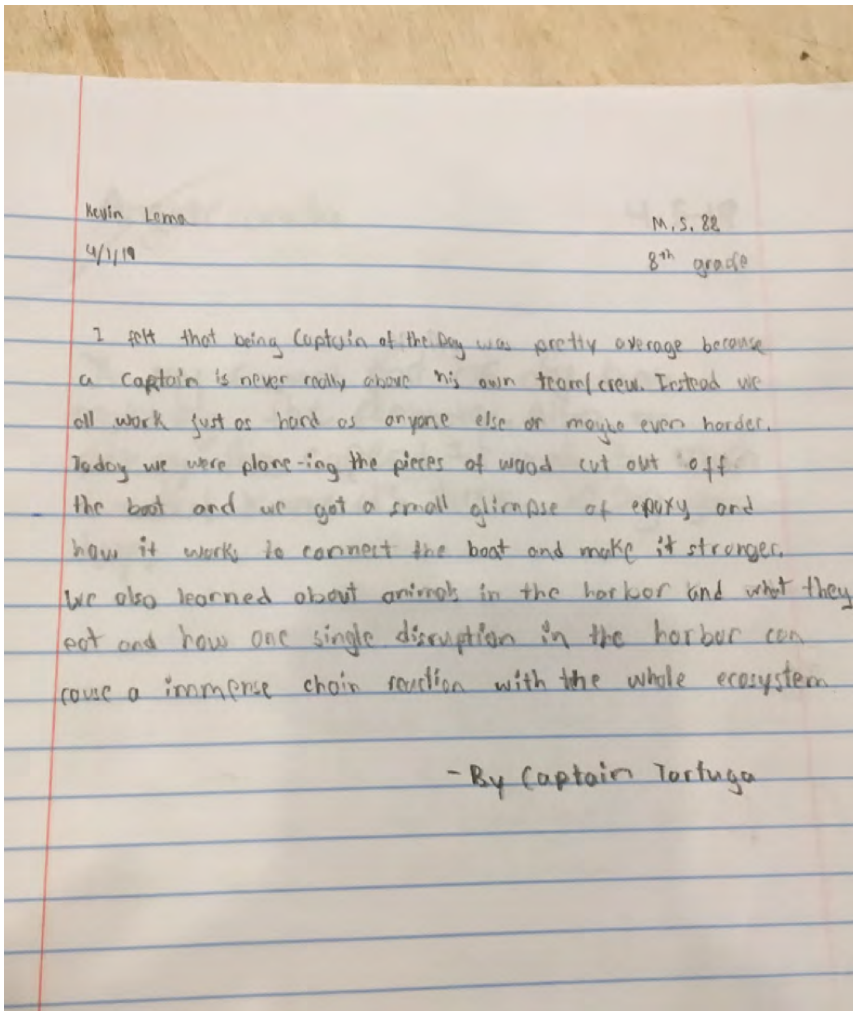 Kevin Lema
M.S. 88
4/1/19
8th grade
I felt that being Captain of the Day was pretty average because
a Captain is never really above his own team/crew. Instead we
all work just as hard as anyone else or maybe even harder.
Today we were plane-ing the pieces of wood cut out off
the boat and we got a small glimpse of epoxy and
how it works to connect the boat and make it stronger.
We also learned about animals in the harbor and what they
eat and how one single disruption in the harbor can
cause a immense chain reaction with the whole ecosystem
- By Captain Tortuga